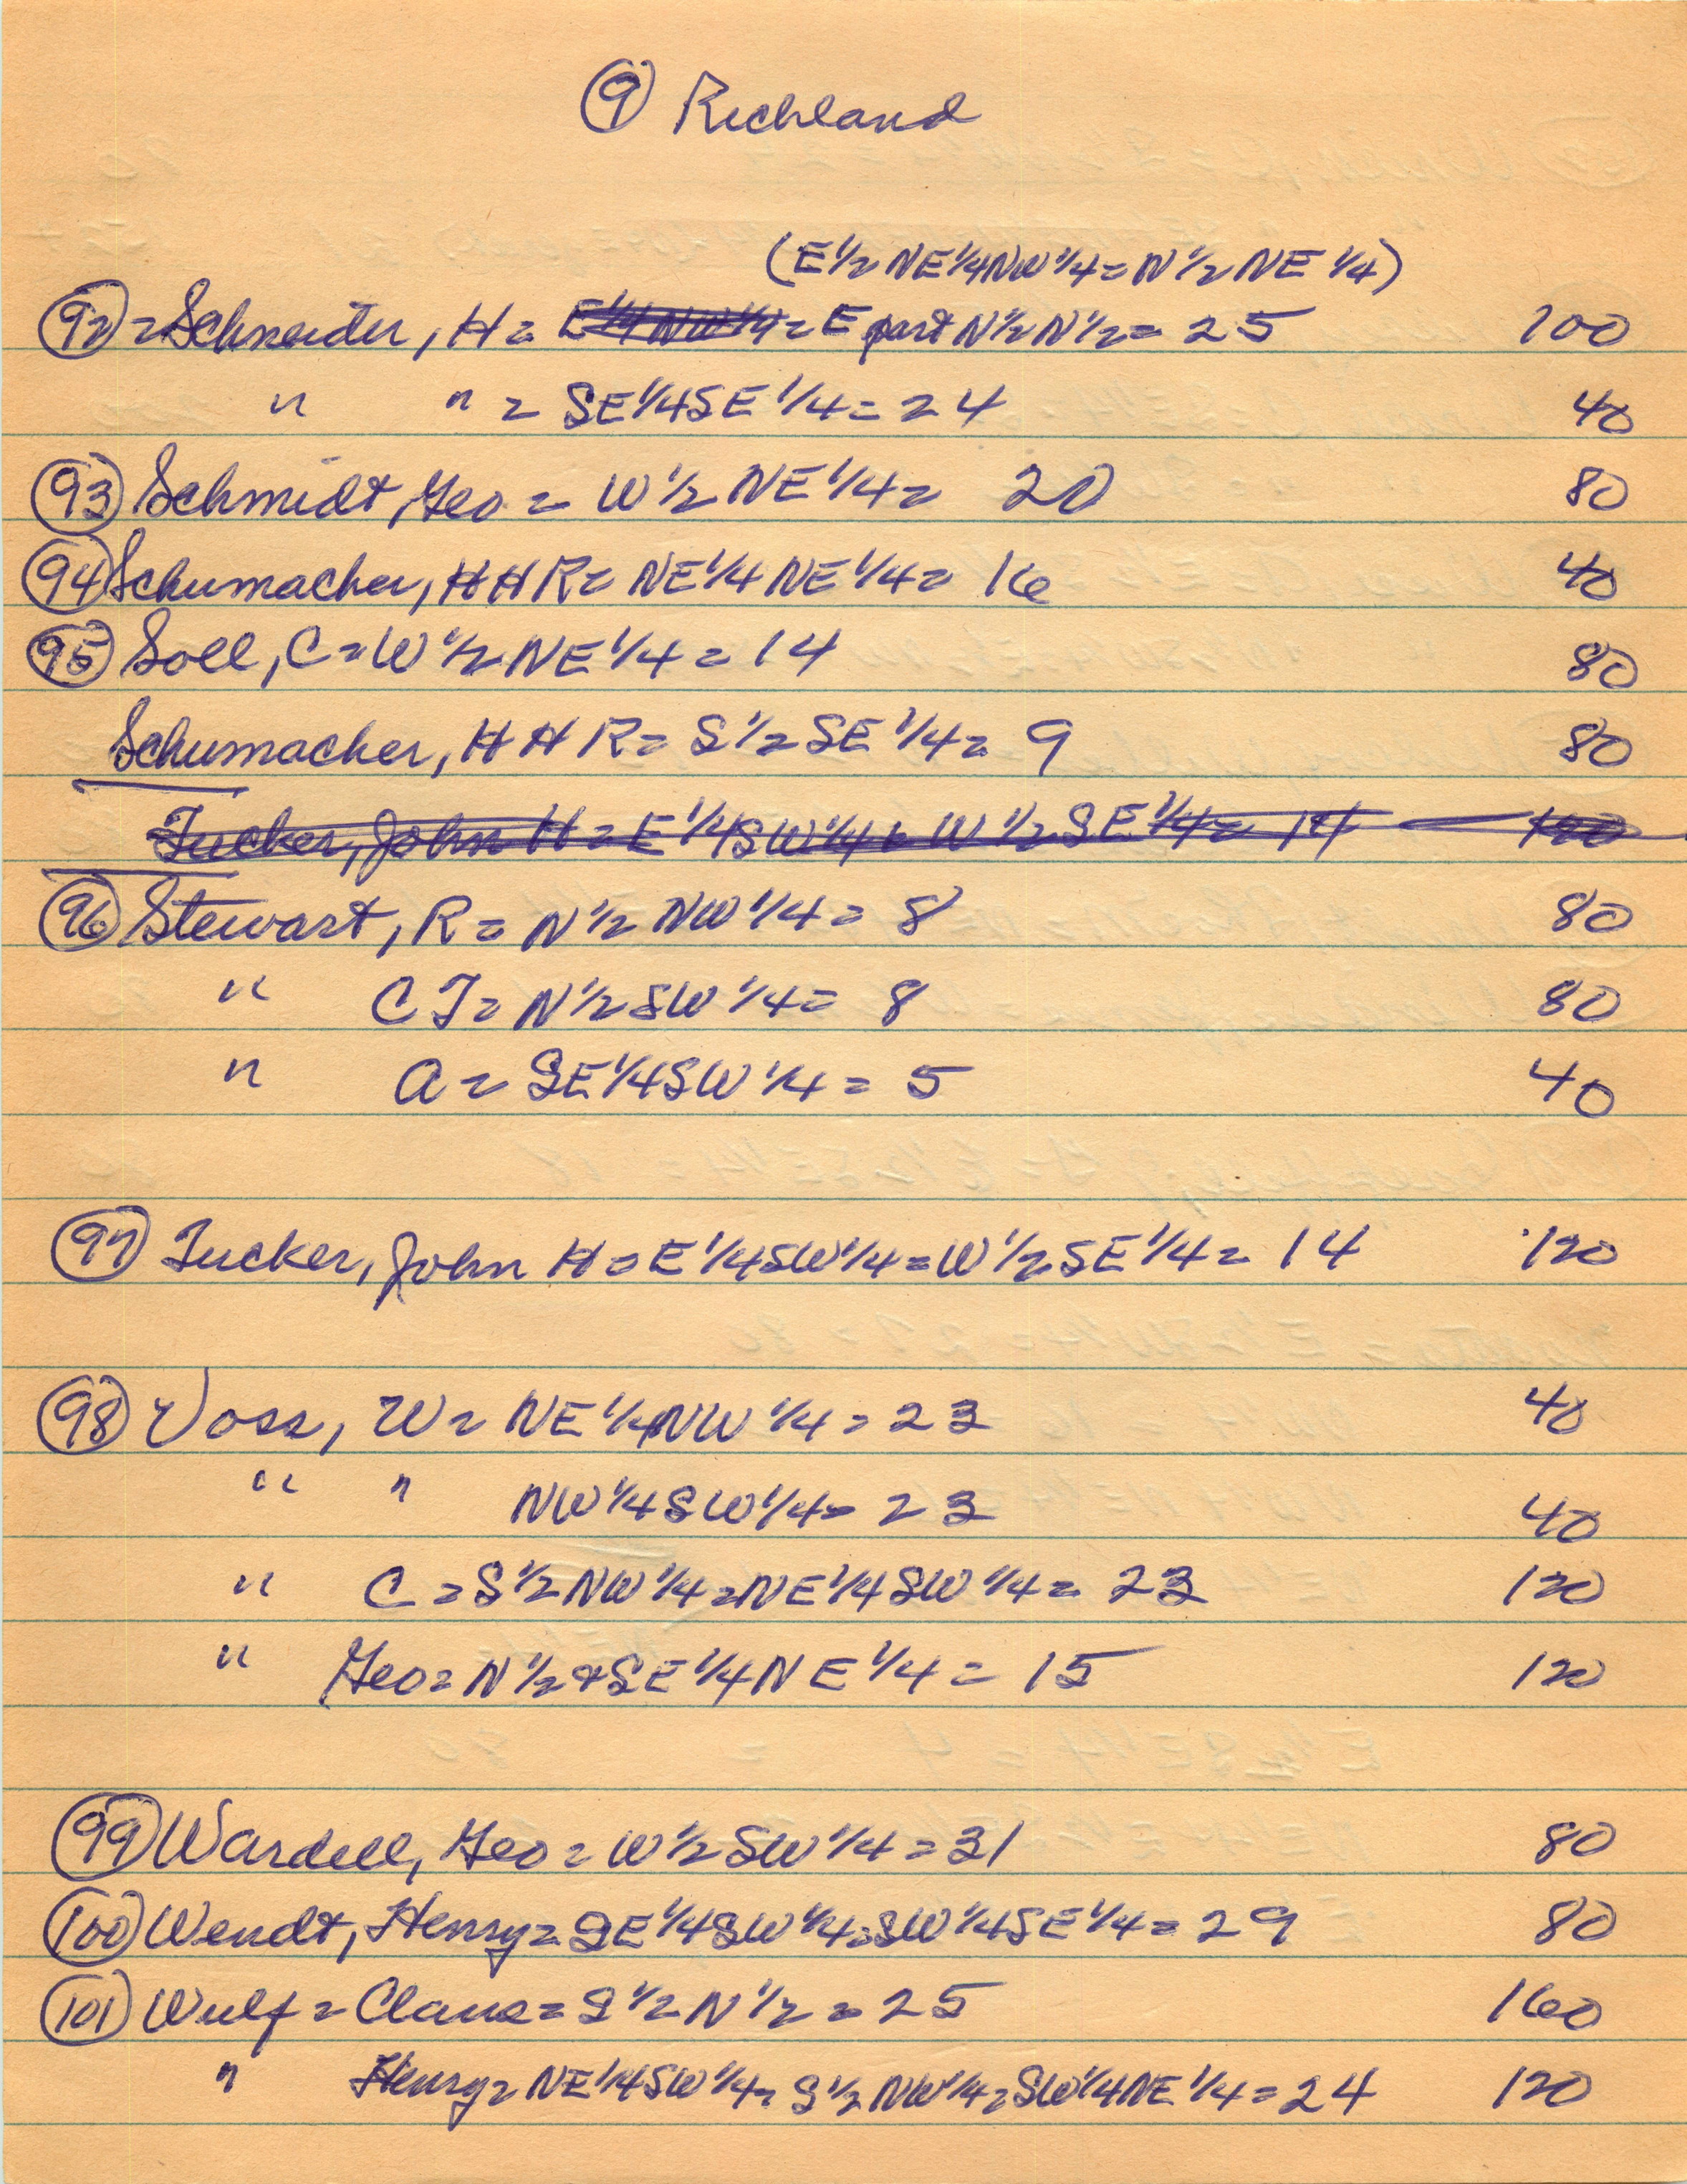 9 Richland
(E 1/2 NE 1/4 NW 1/4 = N 1/2 NE 1/4)
92 = Schneider, H = E 1/4 NW 1/4 = E part N 1/2 N 1/2 = 25 100
" " = SE 1/4 SE 1/4 = 24 40
93 Schmidt, Geo = W 1/2 NE 1/4 = 20 80
94 Schumacher, H H R = NE 1/4 NE 1/4 = 16 40
95 Soll, C = W 1/2 NE 1/4 = 14 80
Schumacher, H H R = S 1/2 SE 1/4 = 9 80
Tucker, John H = E 1/4 SW 1/4 = W 1/2 SE 1/4 = 14 120
96 Stewart, R = N 1/2 NW 1/4 = 8 80
" C J = N 1/2 SW 1/4 = 8 80
" A = SE 1/4 SW 1/4 = 5 40
97 Tucker, John H = E 1/4 SW 1/4 = W 1/2 SE 1/4 = 14 120
98 Voss, W = NE 1/4 NW 1/4 = 23 40
" " NW 1/4 SW 1/4 = 23 40
" C = S 1/2 NW 1/4 = NE 1/4 SW 1/4 = 23 120
" Geo = N 1/2 & SE 1/4 NE 1/4 = 15 120
99 Wardell, Geo = W 1/2 SW 1/4 = 31 80
100 Wendt, Henry = SE 1/4 SW 1/4 = SW 1/4 SE 1/4 = 29 80
101 Wulf = Claus = S 1/2 N 1/2 = 25 160
" Henry = NE 1/4 SW 1/4 = S 1/2 NW 1/4 = SW 1/4 NE 1/4 = 24 120